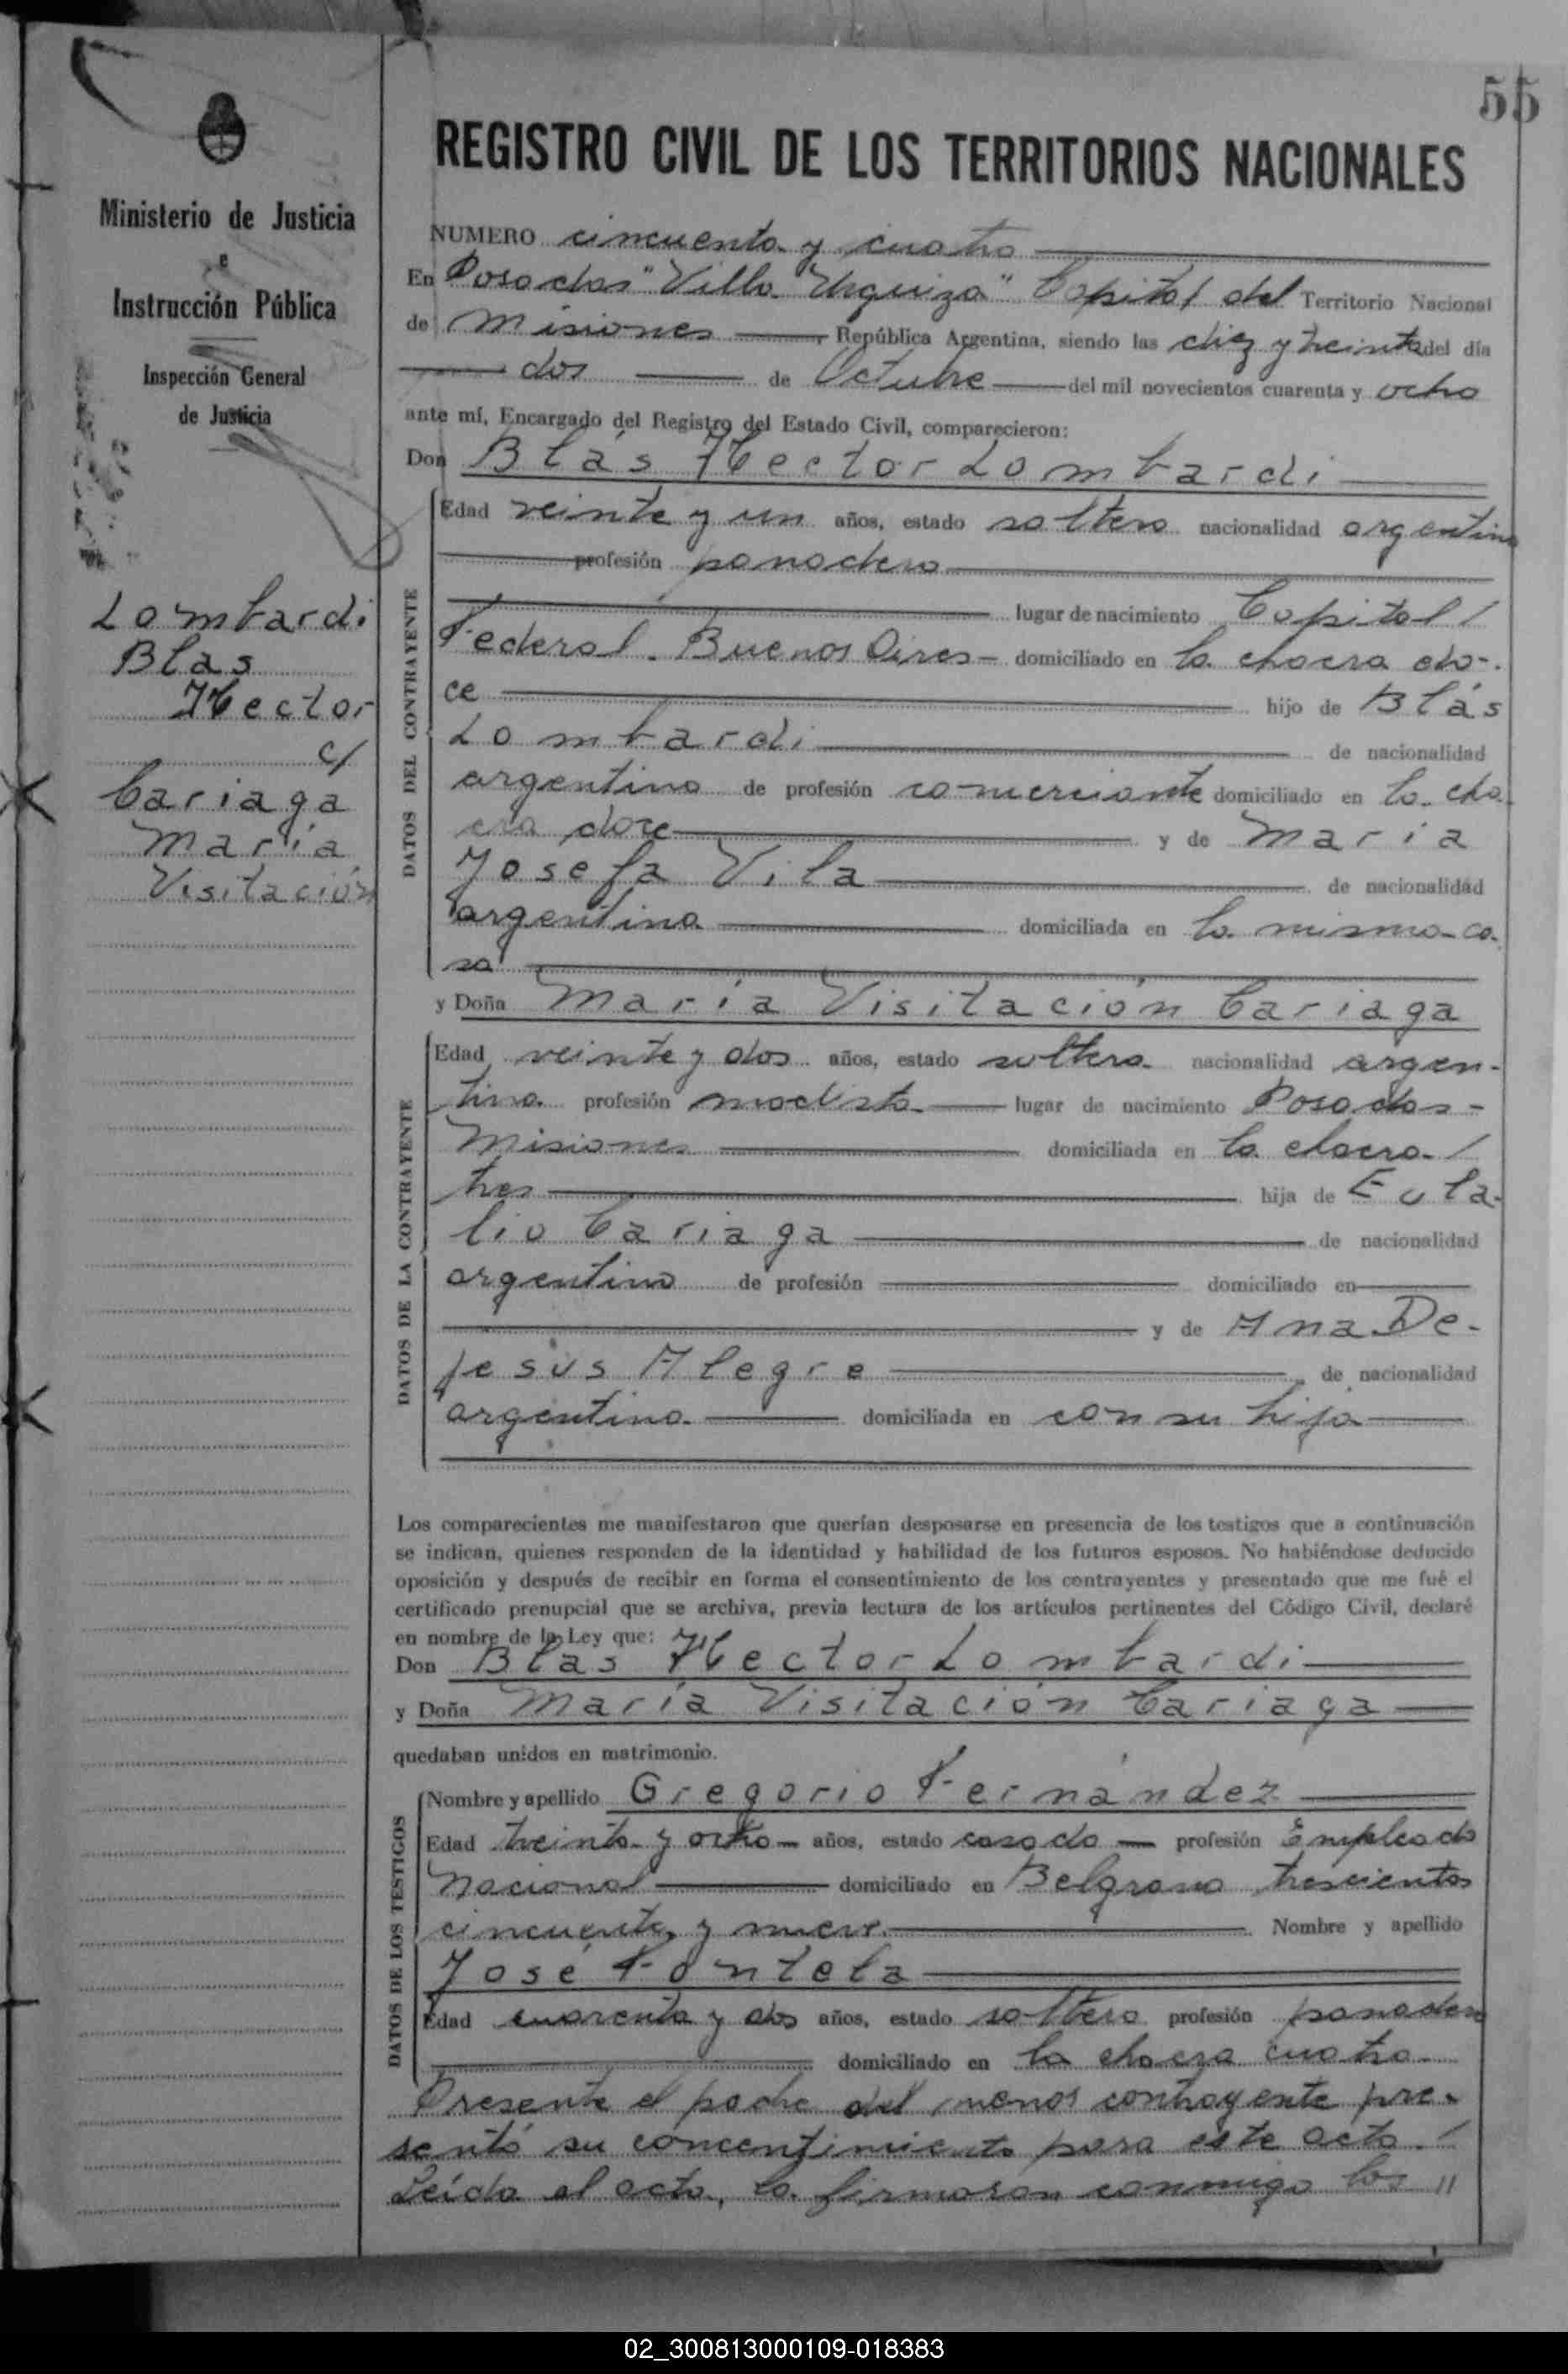 55
Ministerio de Justicia
e
Instrucción Pública
Inspección General
de Justicia
Lombardi
Blas
Hector
c/
Cariaga
María
Visitación
REGISTRO CIVIL DE LOS TERRITORIOS NACIONALES
NUMERO cincuenta y cuatro
En Posadas "Villa Urquiza" Capital del Territorio Nacional
de Misiones República Argentina, siendo las diez y treinta del día
dos de Octubre del mil novecientos cuarenta y ocho
ante mí, Encargado del Registro del Estado Civil, comparecieron:
Don Blás Hector Lombardi
DATOS DEL CONTRAYENTE
Edad veinte y un años, estado soltero nacionalidad argentino
profesión panadero
lugar de nacimiento Capital /
Federal - Buenos Aires - domiciliado en la chacra do-
ce hijo de Blás
Lombardi de nacionalidad
argentino de profesión comerciante domiciliado en la cha-
cra doce y de María
Josefa Vila de nacionalidad
argentina domiciliada en la misma ca-
sa
y Doña María Visitación Cariaga
DATOS DE LA CONTRAYENTE
Edad veinte y dos años, estado soltera nacionalidad argen-
tina profesión modista lugar de nacimiento Posadas -
Misiones domiciliada en la chacra /
tres hija de Eula-
lio Cariaga de nacionalidad
argentino de profesión domiciliado en
y de Ana De-
jesús Alegre de nacionalidad
argentina domiciliada en con su hija
Los comparecientes me manifestaron que querían desposarse en presencia de los testigos que a continuación
se indican, quienes responden de la identidad y habilidad de los futuros esposos. No habiéndose deducido
oposición y después de recibir en forma el consentimiento de los contrayentes y presentado que me fué el
certificado prenupcial que se archiva, previa lectura de los artículos pertinentes del Código Civil, declaré
en nombre de la Ley que:
Don Blas Hector Lombardi
y Doña María Visitación Cariaga
quedaban unidos en matrimonio.
DATOS DE LOS TESTIGOS
Nombre y apellido Gregorio Fernández
Edad treinta y ocho años, estado casado profesión Empleado
Nacional domiciliado en Belgrano trescientos
cincuenta y nueve. Nombre y apellido
José Fontela
Edad cuarenta y dos años, estado soltero profesión panadero
domiciliado en la chacra cuatro
Presente el padre del menor contrayente pre-
sentó su concentimiento para este acto. /
Leída el acta, la firmaron conmigo los "
02_300813000109-018383